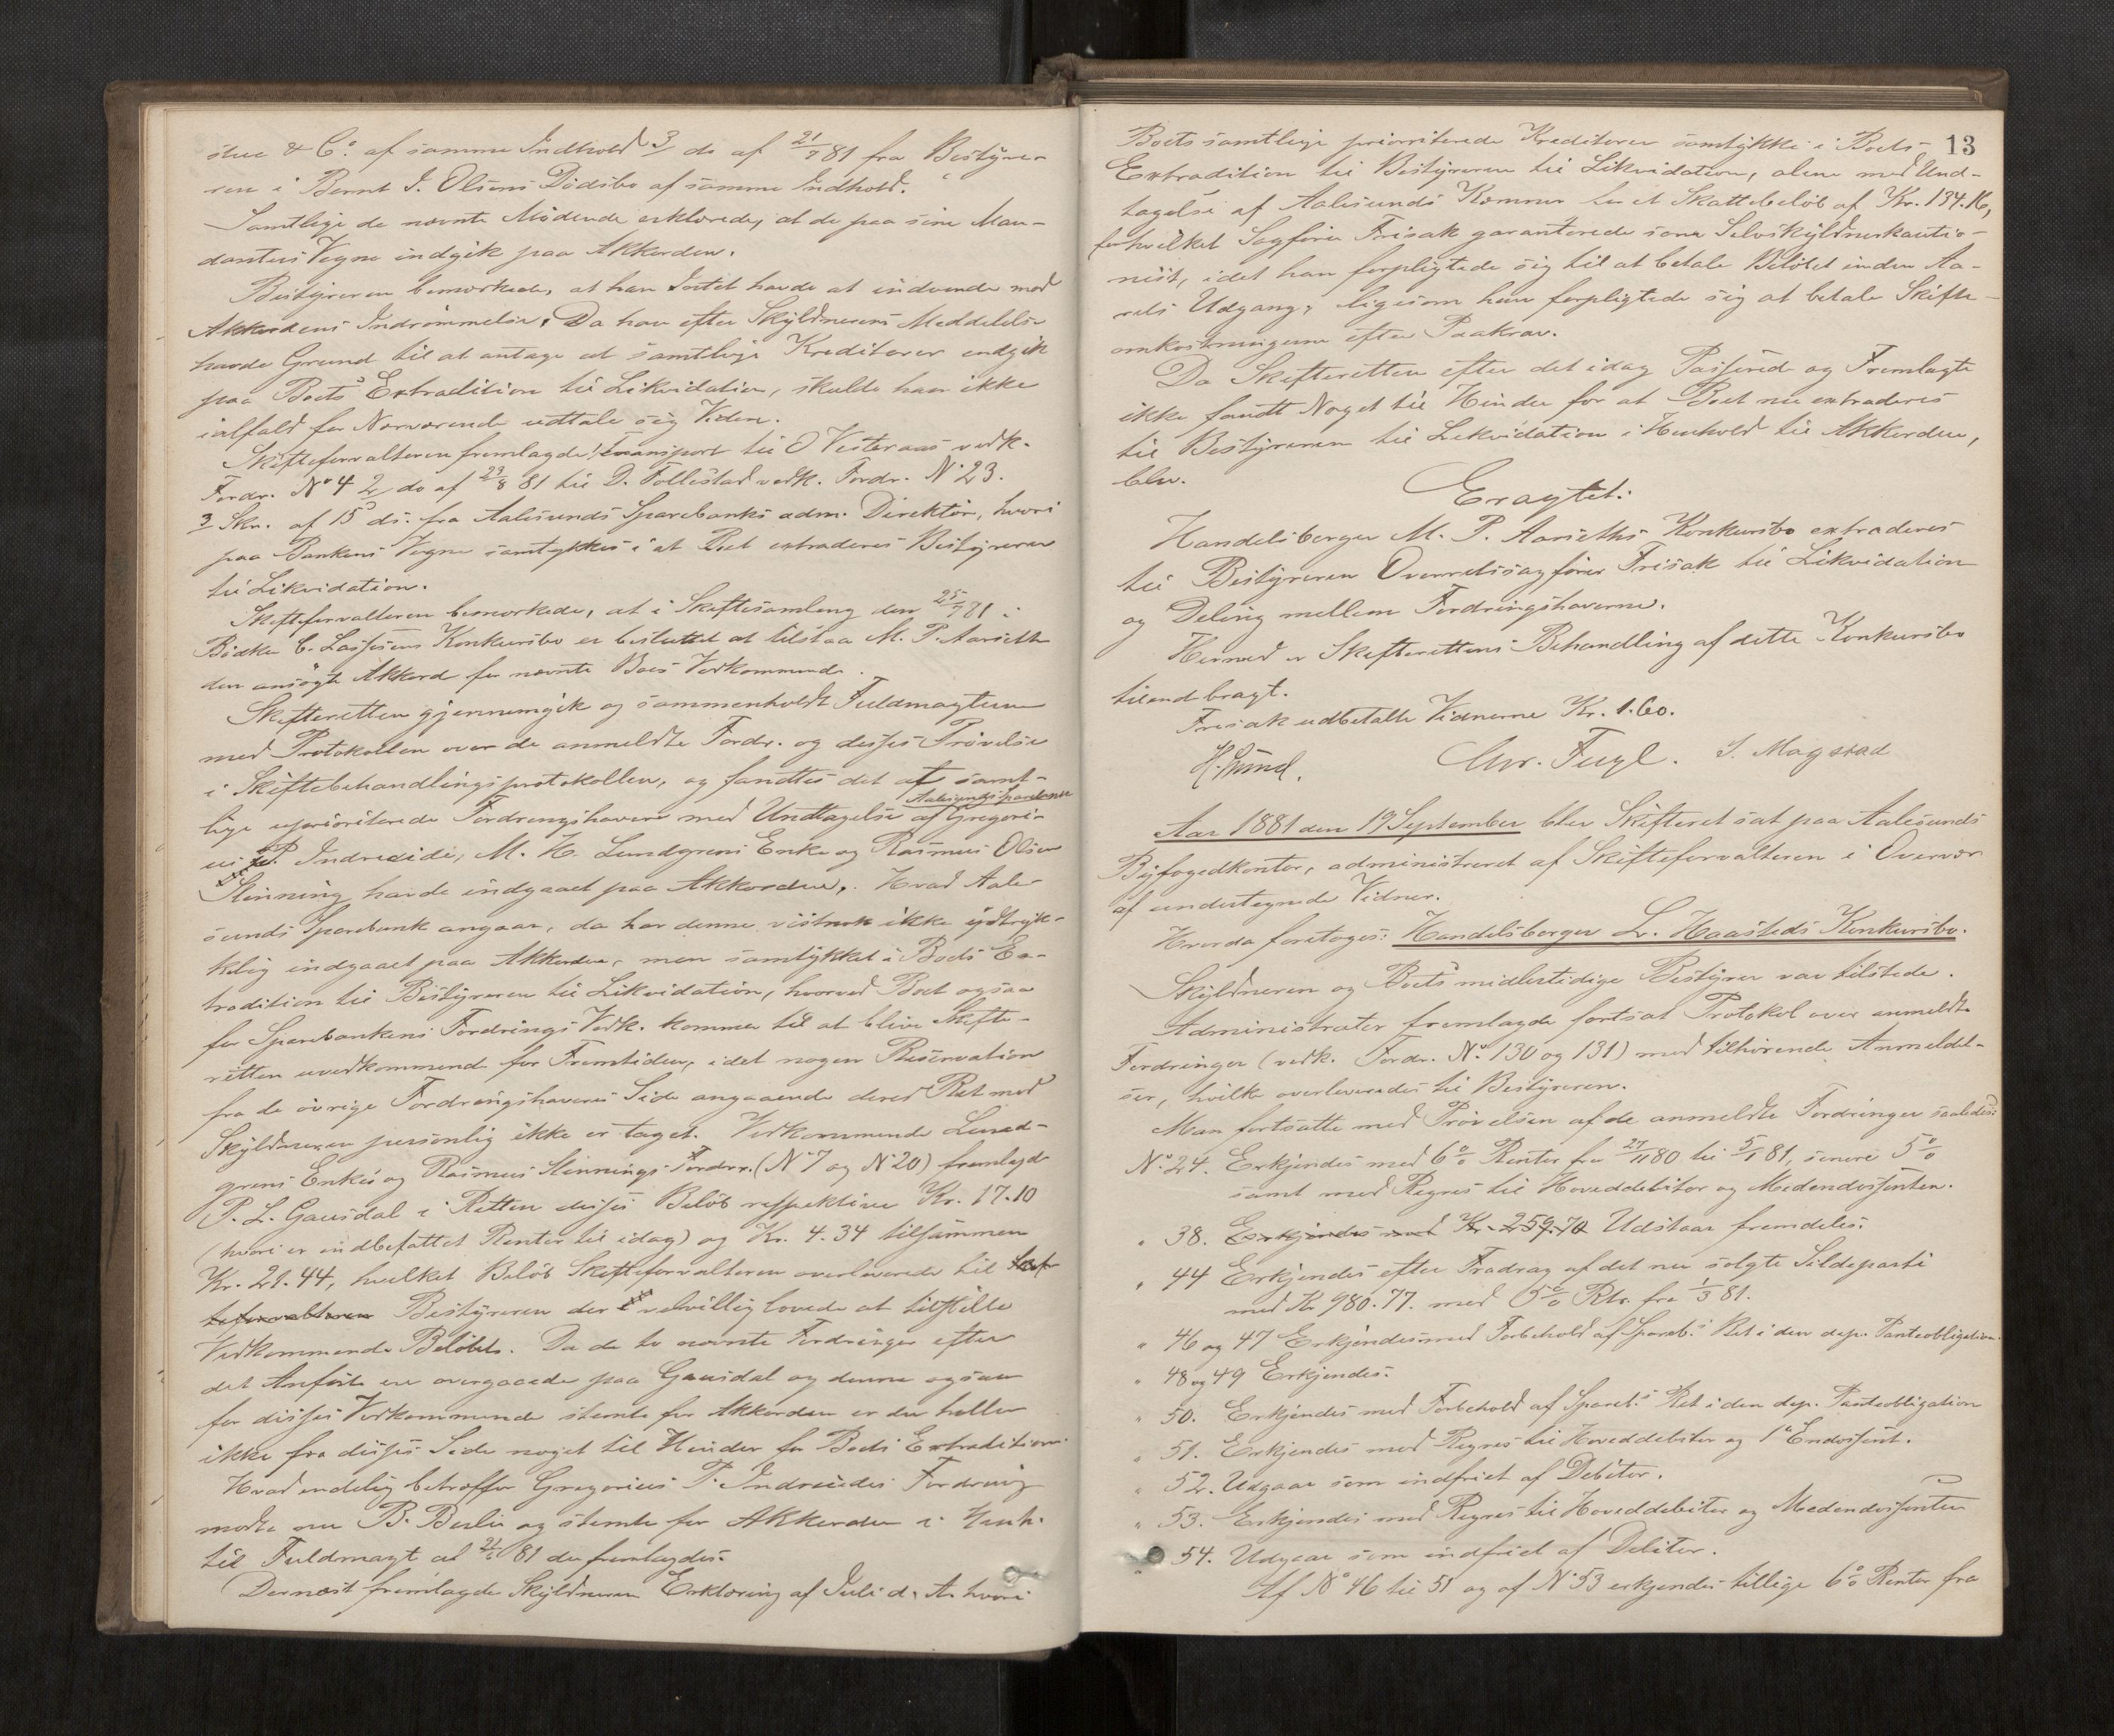 & Co. af samme Indhold 3/ do af 21/7 81 fra Bestyre-
ren i Bernt J. Olsens Dödsbo af samme Indhold.
Samtlige de nævnte Mödende erklærede, at de paa sine Man-
danters Vegne indgik paa Akkorden.
Bestyreren bemærkede, at han Intet havde at indvende mod
Akkordens Indrömmelse. Da han efter Skyldnerens Meddelelse
havde Grund til at antage at samtlige Kreditorer indgik
paa Boets Extradition til Likvidation, skulde han ikke
ialfald for Nærværende udtale sig Viden.
Skifteforvalteren fremlagde: Transport til O Vesteraas vedk.
Fordr. No 4 2/ do af 29/8 81 til D. Follestad vedk. Fordr. No 23.
3/ Skr. af 15 ds. fra Aalesunds Sparebanks adm. Direktör, hvori
paa Bankens Vegne samtykkes i at Boet extraderes Bestyreren
til Likvidation.
Skifteforvalteren bemærkede, at i Skiftesamling den 25/7 81 i
Bödker C. Lassesens Konkursbo er besluttet at tilstaa M. P. Aarseth
den ansögte Akkord for nævnte Boes Vedkommende.
Skifteretten gjennemgik og sammenholdt Fuldmagterne
med Protokollen over de anmeldte Fordr. og disses Prövelse
i Skiftebehandlingsprotokollen, og fandtes det at samt-
lige uprioriterede Fordringshavere med Undtagelse af Aalesunds Sparebank Gregori-
us P. Indreeide, M. H. Lundgrens Enke og Rasmus Olsen
Slinning havde indgaaet paa Akkorden. Hvad Aale-
sunds Sparebank angaar, da har denne vistnok ikke udtryk-
kelig indgaaet paa Akkorden, men samtykket i Boets Ex-
tradition til Bestyreren til Likvidation, hvorved Boet ogsaa
for Sparebankens Fordrings Vedk. kommer til at blive Skifte-
retten uvedkommende for Fremtiden, idet nogen Reservation
fra de övrige Fordringshaveres Side angaaende deres Ret mod
Skyldneren personlig ikke er taget. Vedkommende Lund-
grens Enkes og Rasmus Slinnings Fordrr. (No 7 og No 20) fremlagde
P. L. Gausdal i Retten disses Belöb respektive Kr. 17.10
(hvori er indbefattet Renter til idag) og Kr. 4.34 tilsammen
Kr. 21.44, hvilket Belöb Skifteforvalteren overleverede til Skif-
teforvalteren Bestyreren der velvillig lovede at tilstille
Vedkommende Belöbet. Da de to nævnte Fordringer efter
det Anförte ere overgaaede paa Gausdal og denne ogsaa
for disses Vedkommende stemte for Akkorden er der heller
ikke fra disses Side noget til Hinder for Boets Extradition.
Hvad endelig betræffer Gregorius P. Indreeides Fordring
mödte nu B. Berlin og stemte for Akkorden i Henh.
til Fuldmagt af 81 der fremlagdes.
Dernæst fremlagde Skyldneren Erklæring af Juli d. A. hvori
13
Boets samtlige prioriterede Kreditorer samtykke i Boets
Extradition til Bestyreren til Likvidation, alene med Und-
tagelse af Aalesunds Kæmner for et Skattebelöb af Kr. 134.16,
for hvilket Sagförer Frisak garanterede som Selvskyldnerkautio-
nist, idet han forpligtede sig til at betale Belöbet inden Aa-
rets Udgang, ligesom han forpligtede sig at betale Skifte-
omkostningerne efter Paakrav.
Da Skifteretten efter det idag Passerede og Fremlagte
ikke fandt Noget til Hinder for at Boet nu extraderes
til Bestyreren til Likvidation i Henhold til Akkorden,
blev.
Eragtet:
Handelsborger M. P. Aarseths Konkursbo extraderes
til Bestyreren Overretssagförer Frisak til Likvidation
og Deling mellem Fordringshaverne.
Hermed er Skifterettens Behandling af dette Konkursbo
tilendebragt.
Frisak udbetalte Vidnerne Kr. 1.60.
Chr. Fugl. S. Magstad
Aar 1881 den 19 September blev Skifteret sat paa Aalesunds
Byfogedkontor, administreret af Skifteforvalteren i Overvær
af undertegnede Vidner.
Hvorda foretoges: Handelsborger L. Haasteds Konkursbo.
Skyldneren og Boets midlertidige Bestyrer var tilstede.
Administrator fremlagde fortsat Protokol over anmeldte
Fordringer (vedk. Fordr. No 130 og 131) med tilhörende Anmeldel-
ser, hvilke overleveredes til Bestyreren.
Man fortsatte med Prövelsen af de anmeldte Fordringer saaledes:
No 24. Erkjendes med 6 % Renter fra 27/11 80 til 5/1 81, senere 5 %
samt med Regres til Hoveddebitor og Medendossenten.
" 38. Erkjendes med Kr. 259.70 Udstaar fremdeles.
" 44 Erkjendes efter Fradrag af det nu solgte Sildeparti
med Kr 980.77. med 5 % Rtr. fra 1/3 81.
" 46 og 47 Erkjendes med Forbehold af Spareb.s Ret i den dep. Panteobligation.
" 48 og 49 Erkjendes.
" 50. Erkjendes med Forbehold af Spareb.s Ret i den dep. Panteobligation
" 51. Erkjendes med Regres til Hoveddebitor og 1e Endossent.
" 52. Udgaar som indfriet af Debitor.
" 53. Erkjendes med Regres til Hoveddebitor og Medendossenten
" 54. Udgaar som indfriet af Debitor.
Af No 46 til 51 og af No 53 erkjendes tillige 6 % Renter fra